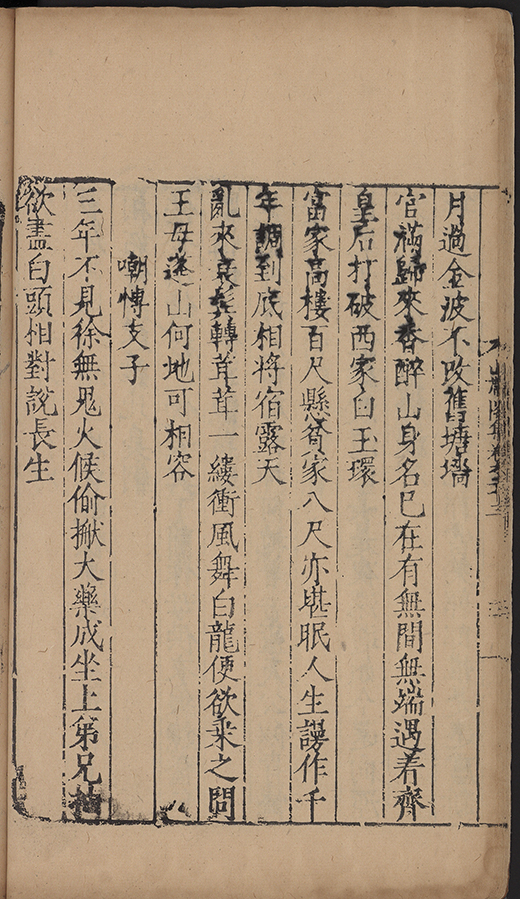 月過金波不改舊塘墻
官滿歸來香醉山身名已在有無間無端遇着齊
皇后打破西家白玉環
富家高樓百尺懸貧家八尺亦堪眠人生謾作千
年調到底相將宿露天
亂來衰髮轉茸茸一縷衝風舞白龍便欲乘之問
王母逢山何地可相容
嘲慱支子
三年不見徐無鬼火候偷掀大藥成坐上弟兄
欲盡白頭相對說長生